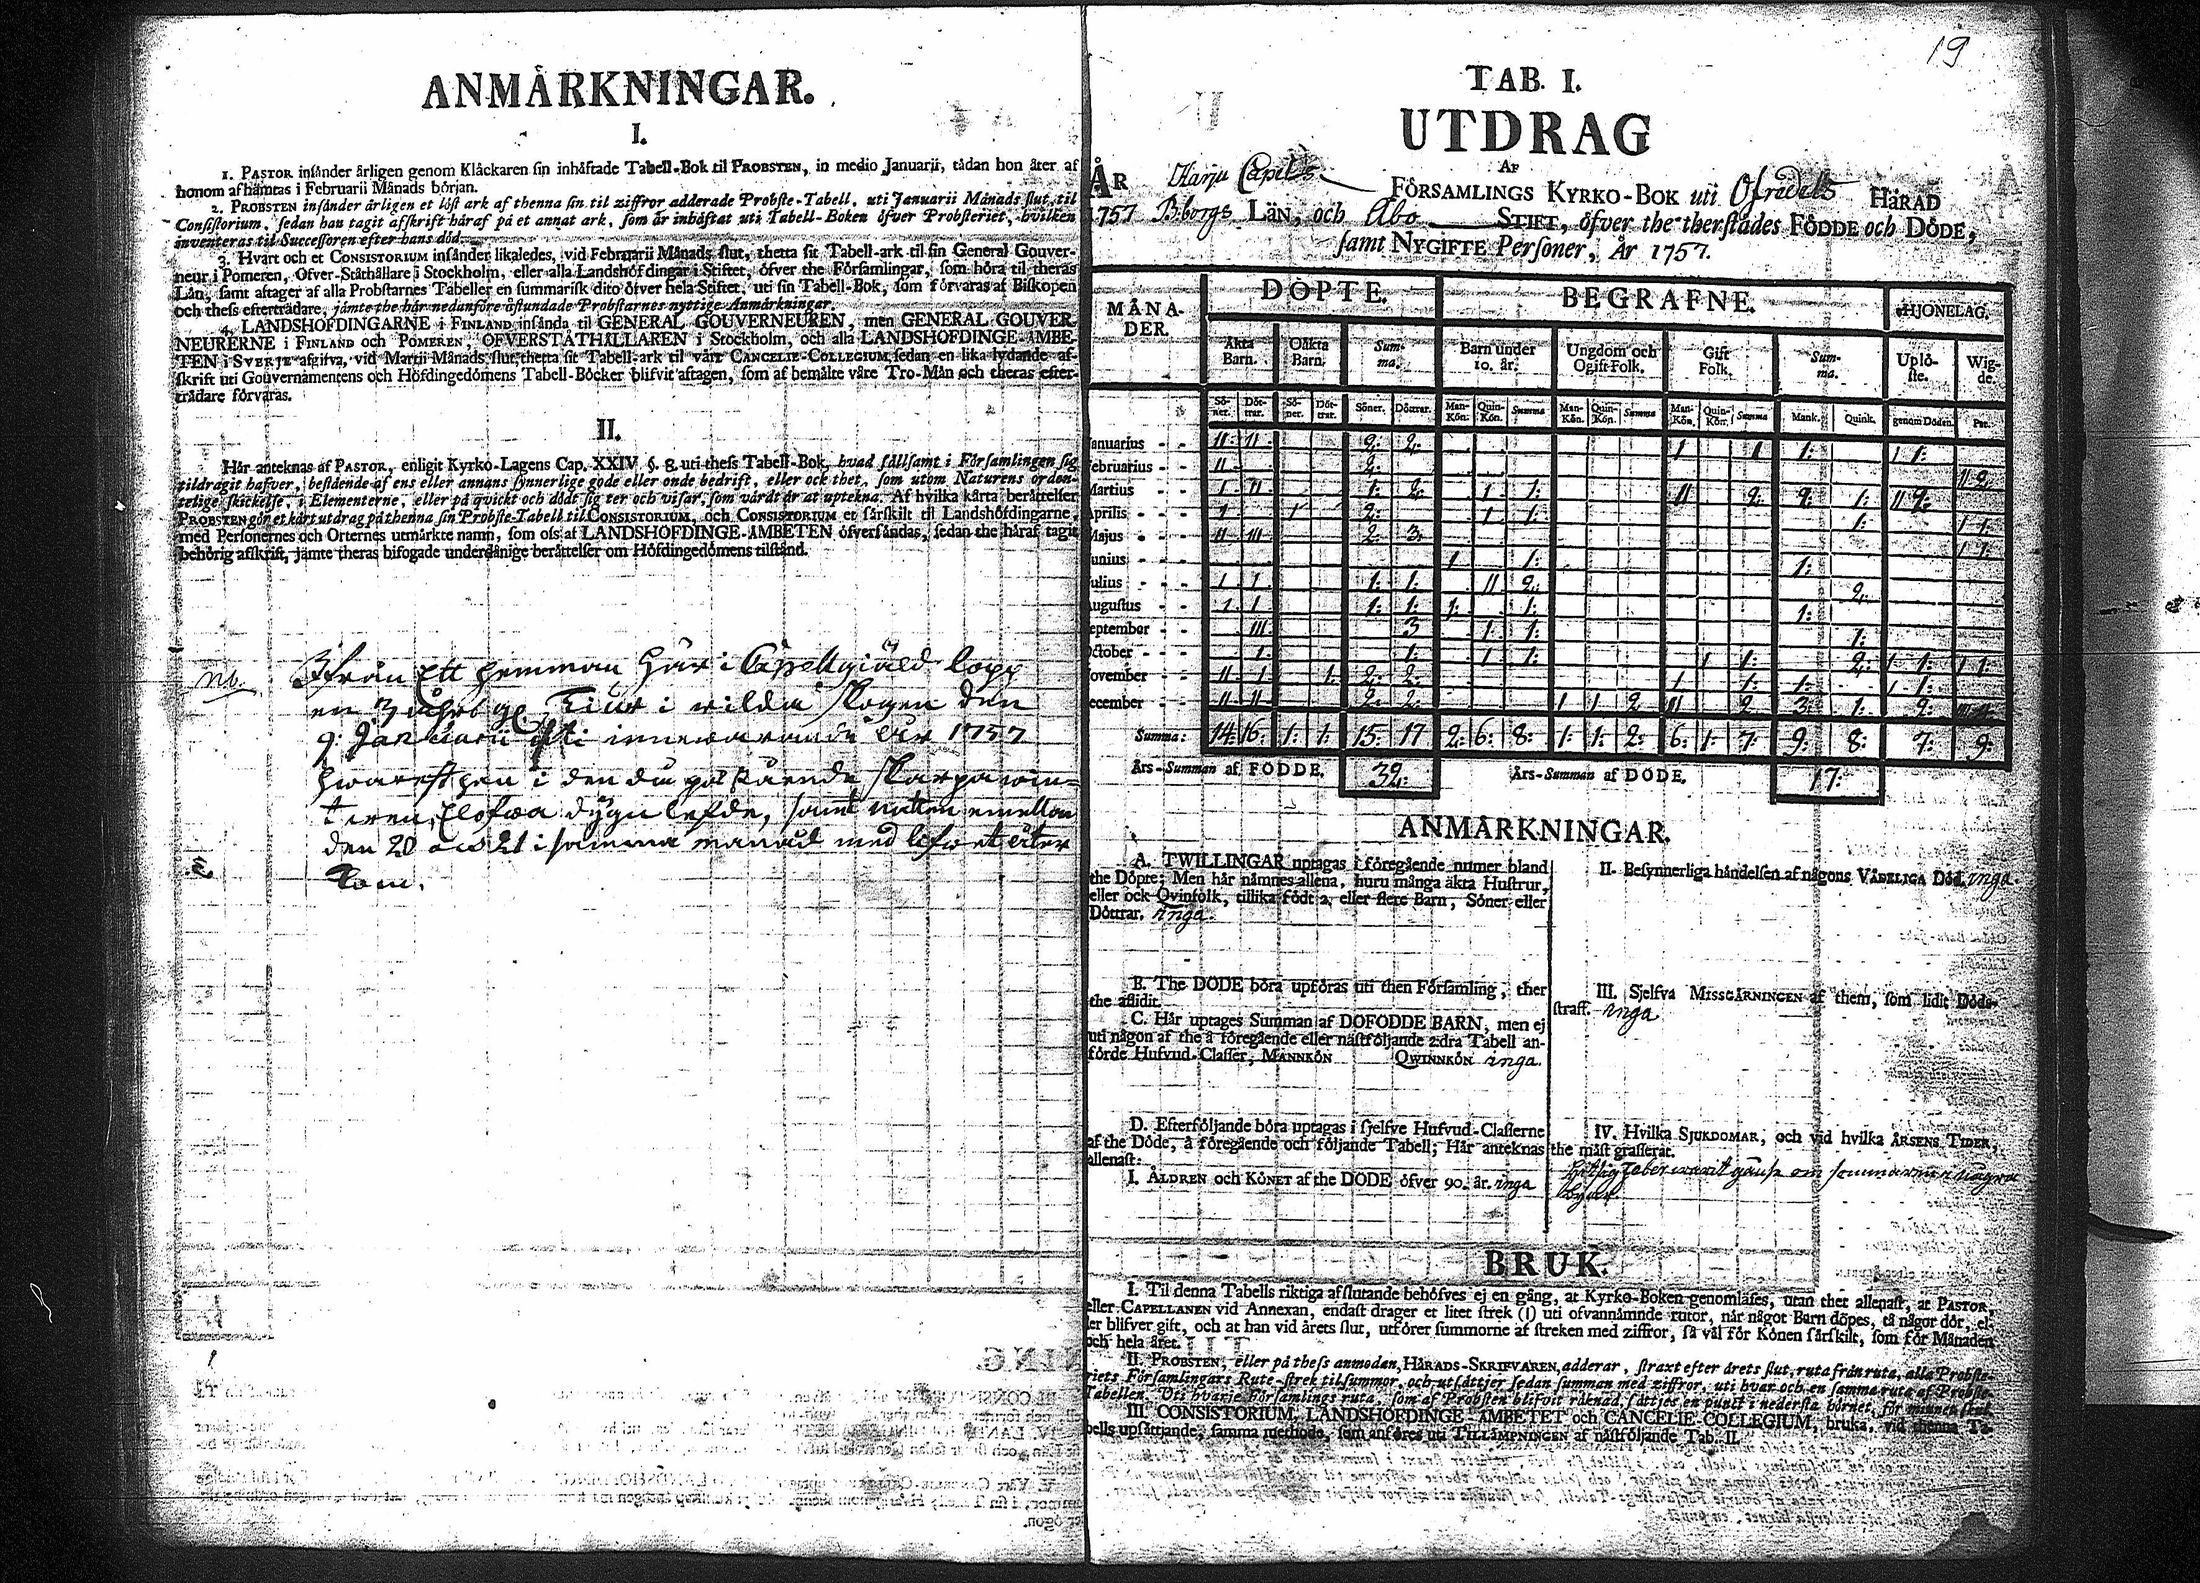 ANMÅRKNINGAR.
I.
1. PASTOR insånder årligen genom Klåckaren sin inhåftade Tabell-Bok til PROBSTEN, in medio Januarii, tådan hon åter af
honom afhåmtas i Februarii Månads början.
2. PROBSTEN insånder årligen et löst ark af thenna sin til ziffror adderade Probste-Tabell, uti Januarii Månads slut, til
Consistorium, sedan han tagit afskrift håraf på et annat ark, som år inbåftat uti Tabell-Boken öfver Probsteriet, hvilken
inventeras til Successoren efter hans död.
3. Hvart och et CONSISTORIUM insånder likaledes, vid Februarii Månads slut, thetta sit Tabell-ark til sin General Gouver-
neur i Pomeren, Ofver-Ståthållare i Stockholm, eller alla Landshöfdingar i Stiftet, öfver the Församlingar, som höra til theras
Lån, samt aftager af alla Probstarnes Tabeller en summarisk dito öfver hela Stiftet, uti sin Tabell-Bok, som förvaras af Biskopen
och thess eftertrådare, jämte the hår nedanföre åstundade Probstarnes nyttige Anmårkningar.
4. LANDSHOFDINGARNE i FINLAND insånda til GENERAL GOUVERNEUREN, men GENERAL GOUVER-
NEURERNE i FINLAND och POMEREN, OFVERSTÅTHÅLLAREN i Stockholm, och alla LANDSHOFDINGE-ÅMBE-
TEN i SVERJE afgifva, vid Martii Månads slut, thetta sit Tabell-ark til vårt CANCELIE-COLLEGIUM, sedan en lika lydande af-
skrift uti Gouvernamentens och Höfdingedömens Tabell-Böcker blifvit aftagen, som af bemålte våre Tro-Mån och theras efter-
trådare förvaras.
II.
Hår anteknas af PASTOR, enligit Kyrko-Lagens Cap. XXIV. §. 8. uti thess Tabell-Bok, hvad sållsamt i Församlingen sig
tildragit hafver, beståënde af ens eller annans synnerlige gode eller onde bedrift, eller ock thet, som utom Naturens orden-
telige skickelse, i Elementerne, eller på qvickt och dödt sig ter och visar, som vårdt år at uptekna. Af hvilka kårta beråttelser
PROBSTEN gör et kårt utdrag på thenna sin Probste-Tabell til CONSISTORIUM, och CONSISTORIUM et sårskilt til Landshöfdingarne,
med Personernes och Orternes utmårkte namn, som oss af LANDSHOFDINGE-ÅMBETEN öfversåndas, sedan the håraf tagit
behörig afskrift, jämte theras bifogade underdånige beråttelser om Höfdingedömens tilstånd.
nb. Ifrån Ett hemman här i Capellgiäld lopp
en 3 åhrs g. Tiur i wilda skogen den
9. Januarii uti innewarande åhr 1757
hwarest han i den då påstående skarpa win-
teren, Elofwa dygn lefde, samt natten emellan
den 20 och 21 i samma månad med lifwet åter
kom.
19
TAB. I.
UTDRAG
AF
ÅR Harju Capels FÖRSAMLINGS KYRKO-BOK uti HÄRAD
1757 LÄN, och Åbo STIFT, öfver the therstådes FÖDDE och DÖDE,
samt NYGIFTE Personer, År 1757.
MÅNA-DER. DÖPTE. BEGRAFNE. HJONELAG.
Åkta Barn. Oåkta Barn. Summa. Barn under 10. år. Ungdom och Ogift-Folk. Gift Folk. Summa. Uplöste. Wigde.
Söner. Döttrar. Söner. Döttrar. Söner. Döttrar. Man-Kön. Quin-Kön. Summa Man-Kön. Quin-Kön. Summa Man-Kön. Quin-Kön. Summa Mank. Quink. genom Döden. Par.
anuarius - - II II 2: 2: 1 1 1: 1 1:
ebruarius - - II 2: II 2:
Martius - - 1 II 1: 2: 1 1: II 2: 2: 1: II 2:
Aprilis - - 1 1 2: 1 1: 1: 1 1:
Majus - - II III 2: 3: 1 1:
unius - - 1 1: 1:
ulius - - 1 1 1: 1: II 2: 2:
ugustus - - 1 1 1: 1: 1: 1: 1:
eptember - - III 3 1 1: 1:
ctober - - 1 1: 1 1: 1 1: 2: 1 1: 1 1:
ovember - - II 1 1: 2: 2: 1 1: 1: 1 1:
ecember - - II II 2: 2: 1 1 2 II 2 3: 1: 2:
Summa: 14: 16: 1: 1: 15: 17 2: 6: 8: 1: 1: 2: 6: 1: 7: 9: 8: 7: 9:
Års-Summan af FÖDDE. 32: Års-Summan af DÖDE. 17:
ANMARKNINGAR.
A. TWILLINGAR uptagas i föregående numer bland
the Döpte; Men hår nåmnes allena, huru många åkta Hustrur,
eller ock Qvinfolk, tillika födt 2. eller flere Barn, Söner eller
Döttrar. inga.
B. The DÖDE böra upföras uti then Församling, ther
the aflidit.
C. Hår uptages Summan af DÖFÖDDE BARN, men ej
uti någon af the å föregående eller nåstföljande 2:dra Tabell an-
förde Hufvud-Classer, MANNKÖN QWINNKÖN inga.
D. Efterföljande böra uptagas i sjelfve Hufvud-Classerne
af the Döde, å föregående och följande Tabell; Hår anteknas
allenast:
I. ÅLDREN och KÖNET af the DÖDE öfver 90. år. inga
II. Besynnerliga håndelsen af någons VÅDELIGA Död. inga.
III. Sjelfva MISSGÅRNINGEN af them, som lidit Döds-
straff. inga
IV. Hvilka SJUKDOMAR, och vid hvilka ÅRSENS TIDER,
the måst grasserat.
Hetsig feber warit gängse om sommaren i några
byar.
BRUK.
I. Til denna Tabells riktiga afslutande behöfves ej en gång, at Kyrko-Boken genomläses, utan thet allenast, at PASTOR,
eller CAPELLANEN vid Annexan, endast drager et litet strek (I) uti ofvannåmnde rutor, når något Barn döpes, tå någor dör, el-
er blifver gift, och at han vid årets slut, utförer summorne af streken med ziffror, så väl för Könen sårskilt, som för Månaden
och hela året.
II. PROBSTEN, eller på thess anmodan, HÄRADS-SKRIFVAREN, adderar, straxt efter årets slut, ruta från ruta, alla Probste-
riets Församlingars Rute-strek til summor, och utsåttjer sedan summan med ziffror, uti hvar och en samma ruta af Probste-
Tabellen. Uti hvarje Församlings ruta, som af Probsten blifvit råknad, såttjes en punct i nedersta hörnet, för minnet skul.
III. CONSISTORIUM, LANDSHÖFDINGE-ÅMBETET och CANCELIE-COLLEGIUM, bruka, vid thenna Ta-
bells upsåttjande, samma methode, som anföres uti TILLÅMPNINGEN af nåstföljande Tab. II.